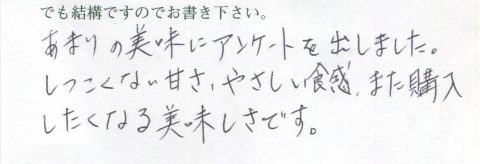 でも結構ですのでお書き下さい。
あまりの美味にアンケートを出しました。
しつこくない甘さ、やさしい食感、また購入
したくなる美味しさです。